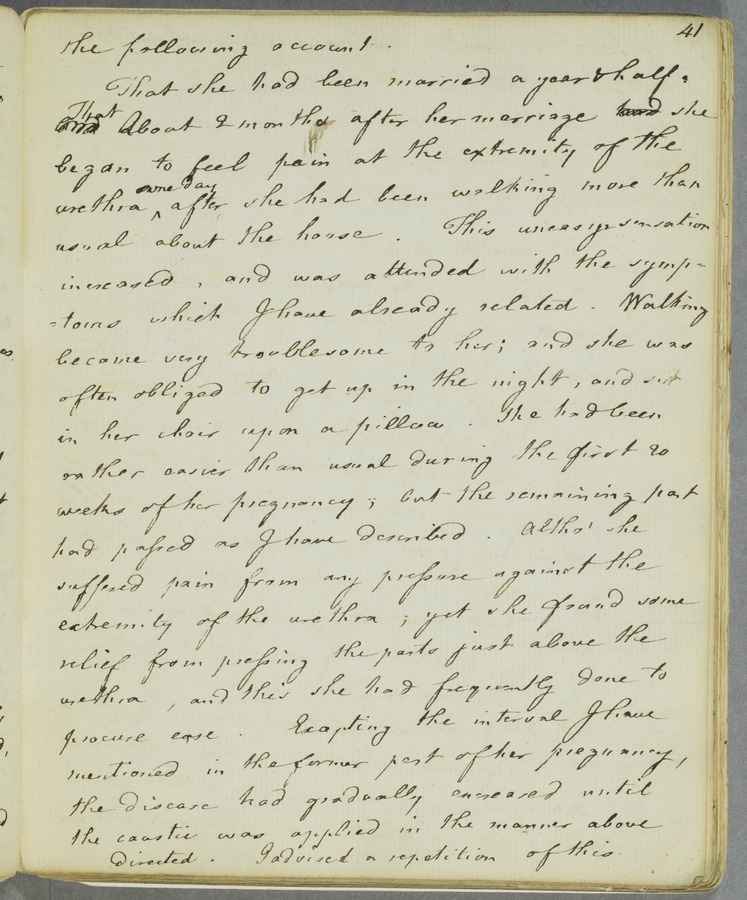 41
the following account.
That she had been married a year & half.
That
and About 2 months after her marriage had she
began to feel pain at the extremity of the
one day
urethra ^ after she had been walking more than
usual about the house. This uneasy sensation
increased, and was attended with the symp=
=toms which I have already related. Walking
became very troublesome to her; and she was
often obliged to get up in the night, and sit
in her chair upon a pillow. She had been
rather easier than usual during the first 20
weeks of her pregnancy; but the remaining part
had passed as I have described. Altho' she
suffered pain from any pressure against the
extremity of the urethra; yet she found some
relief from pressing the parts just above the
urethra, and this she had frequently done to
procure ease. Excepting the interval I have
mentioned in the former part of her pregnancy,
the disease had gradually encreased until
the caustic was applied in the manner above
directed. I advised a repetition of this